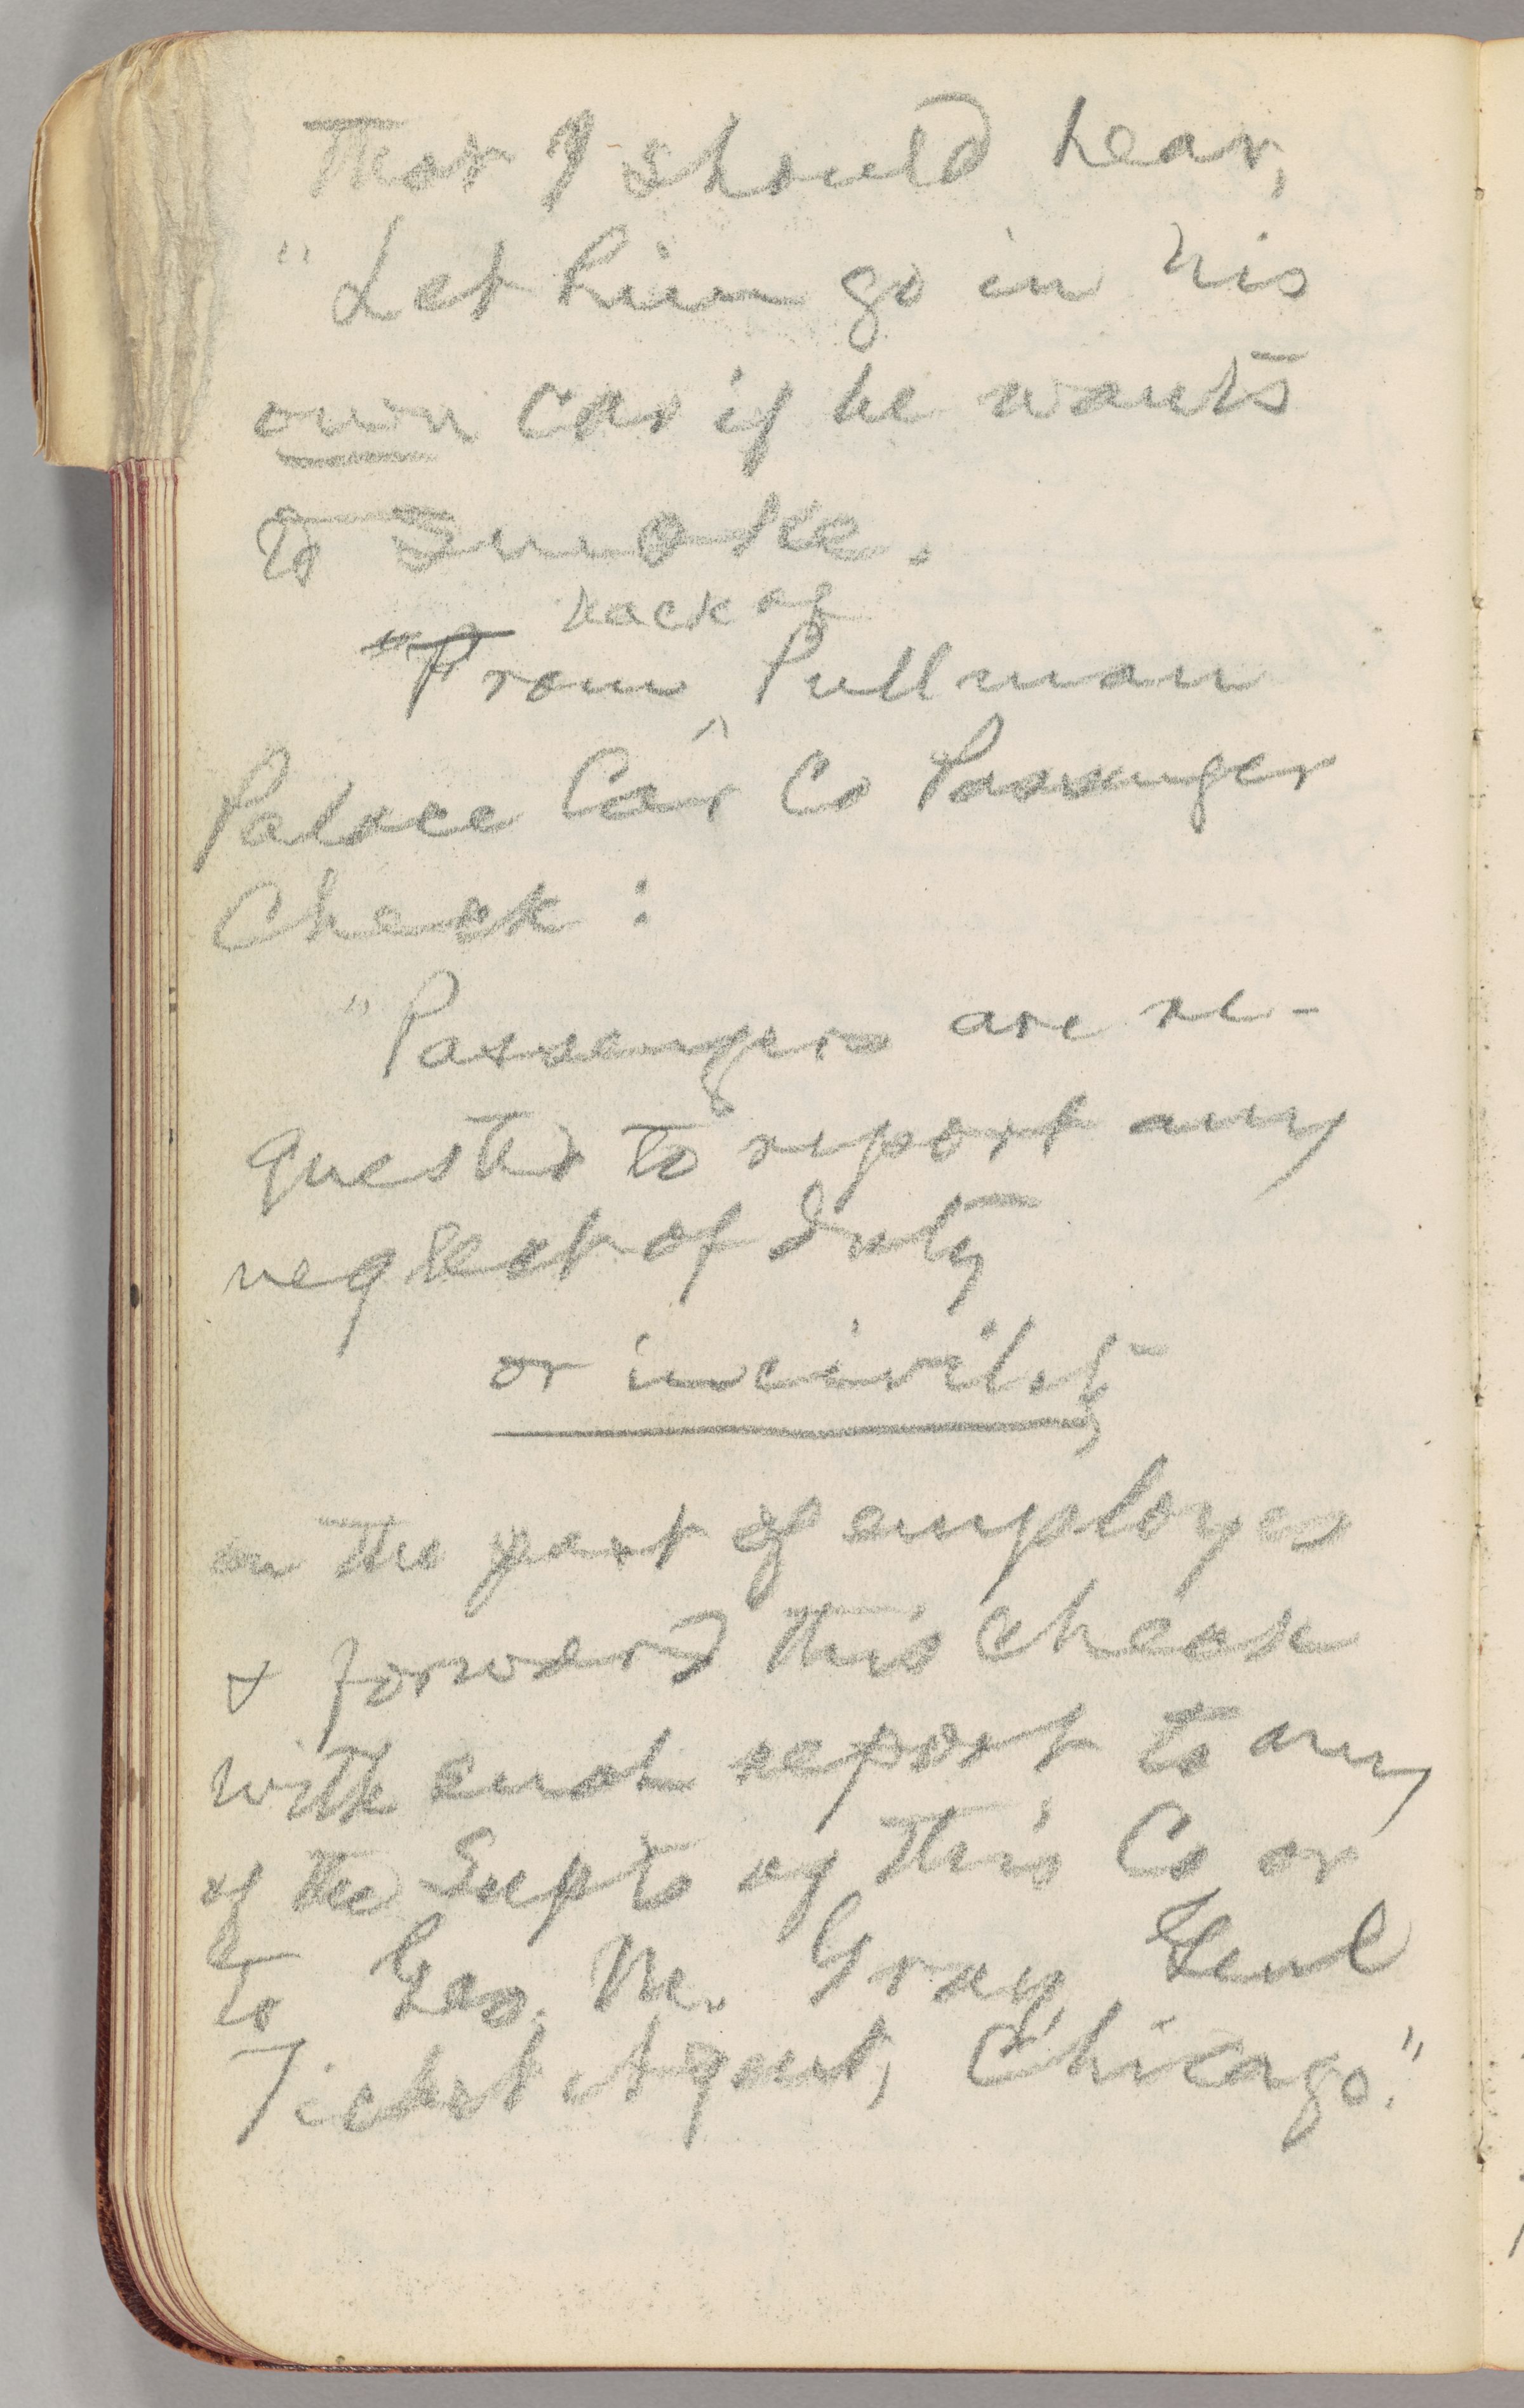 that I should hear,
"Let him go in his
own car if he wants
to smoke.
back of
"From Pullman
^
Palace Car Co Passenger
Check:
"Passengers are re-
quested to report any
neglect of duty
or incivility
on the part of employes
& forward this check
with such report to any
of the Supts of this Co or
to Geo. M. Gray, Genl
Ticket Agent, Chicago."